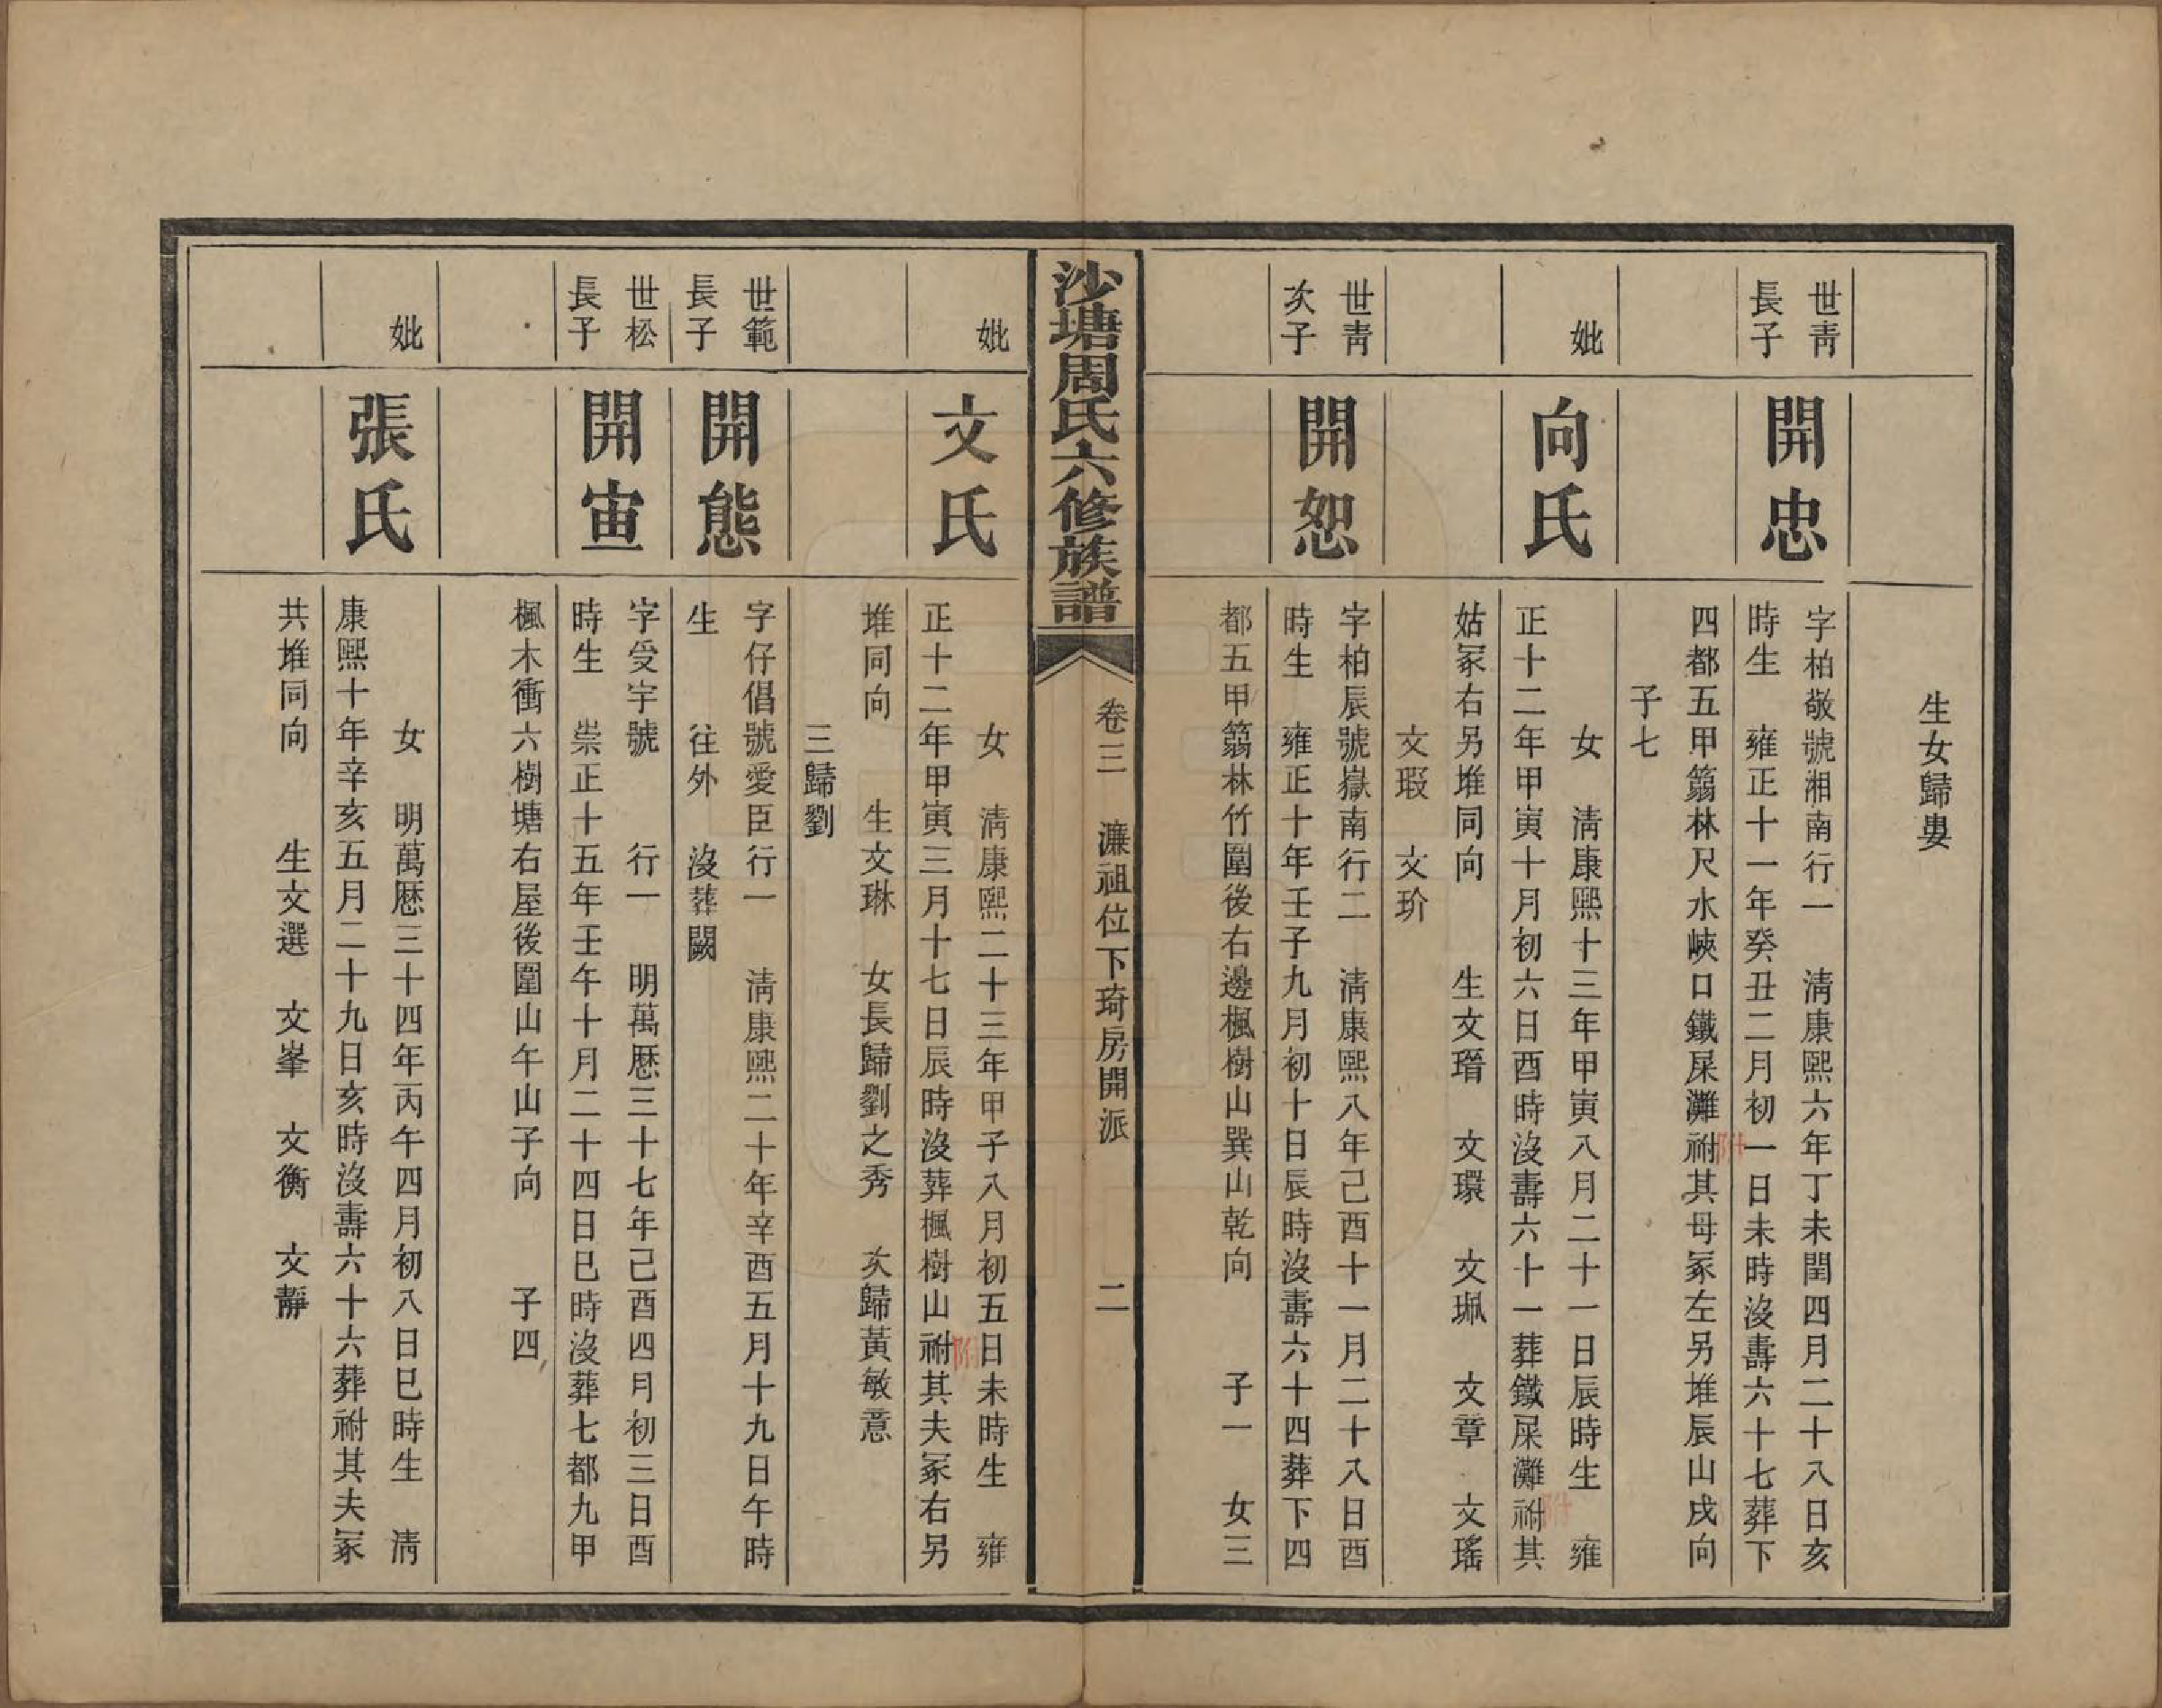 生女歸婁
世靑
長子
開忠
字柏敬號湘南行一　淸康熙六年丁未閏四月二十八日亥
時生　雍正十一年癸丑二月初一日未時沒壽六十七葬下
四都五甲篛林尺水峽口鐵屎灘祔其母冢左另堆辰山戌向
子七
妣
向氏
女　淸康熙十三年甲寅八月二十一日辰時生　雍
正十二年甲寅十月初六日酉時沒壽六十一葬鐵屎灘祔其
姑冢右另堆同向　　生文瑨　文環　文珮　文章　文瑤
文瑕　文玠
世靑
次子
開恕
字柏辰號嶽南行二　淸康熙八年己酉十一月二十八日酉
時生　雍正十年壬子九月初十日辰時沒壽六十四葬下四
都五甲篛林竹圍後右邊楓樹山巽山乾向　　子一　女三
沙塘周氏六修族譜
卷三　濂祖位下琦房開派　　二
妣
文氏
女　淸康熙二十三年甲子八月初五日未時生　雍
正十二年甲寅三月十七日辰時沒葬楓樹山祔其夫冢右另
堆同向　　生文琳　女長歸劉之秀　次歸黃敏意
三歸劉
世範
長子
開態
字仔倡號愛臣行一　淸康熙二十年辛酉五月十九日午時
生　　往外　沒葬闕
世松
長子
開宙
字受宇號　　行一　明萬歷三十七年己酉四月初三日酉
時生　崇正十五年壬午十月二十四日巳時沒葬七都九甲
楓木衝六樹塘右屋後圍山午山子向　　子四
妣
張氏
女　明萬歷三十四年丙午四月初八日巳時生　淸
康熙十年辛亥五月二十九日亥時沒壽六十六葬祔其夫冢
共堆同向　　生文選　文峯　文衡　文靜